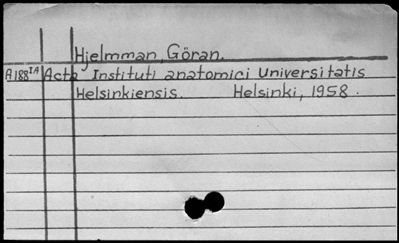 Hjelmman, Göran.
A188IA Acta Instituti anatomici Universitatis
Helsinkiensis. Helsinki, 1958.